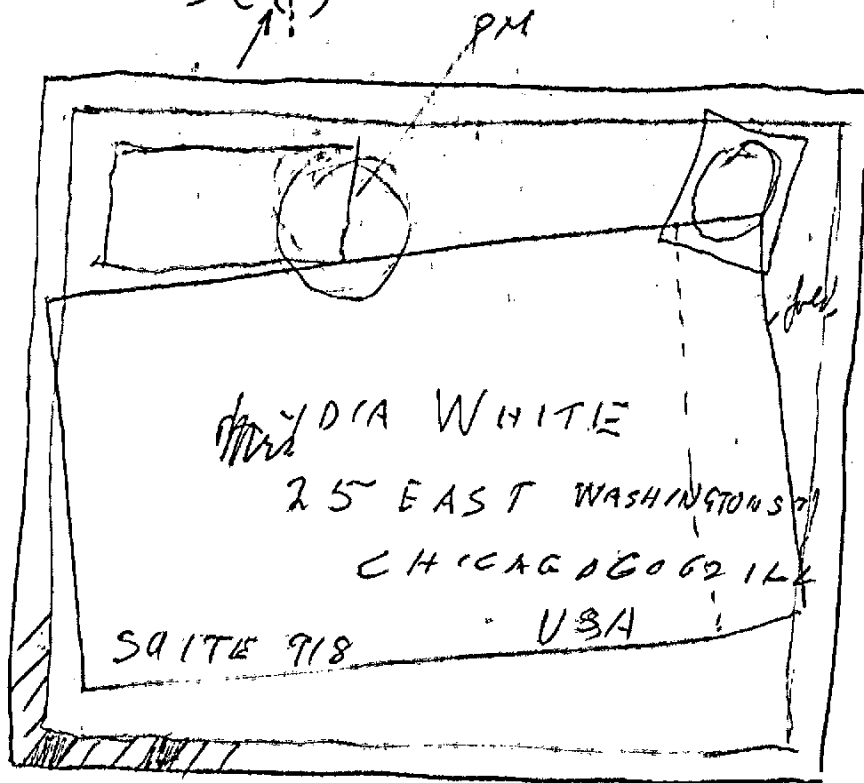 PM
fold
YDIA WHITE
25 EAST WASHINGTON ST
CHICAGO 60602 ILL
USA
SUITE 918